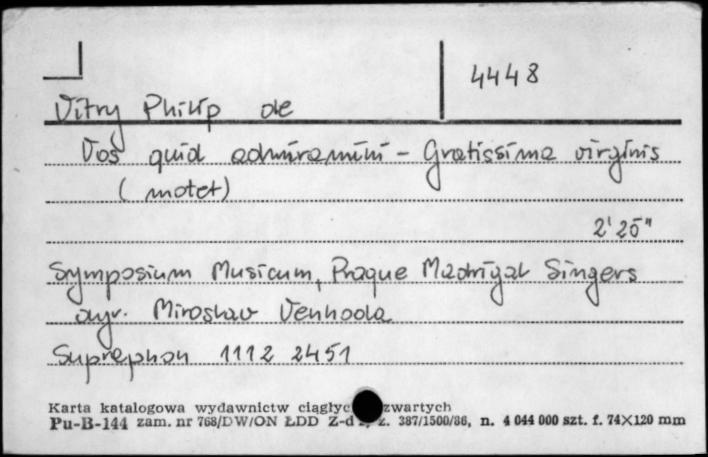 4448
Vitry Philip de
Vos quid admiramini - Gratissima virginis
(motet)
2'25"
Symposium Musicum, Prague Madrigal Singers
dyr. Miroslav Venhoda
Supraphon 1112 2451
Karta katalogowa wydawnictw ciągłyc zwartych
Pu-B-144 zam. nr 768/DW/ON ŁDD Z-d z. 387/1500/86, n. 4 044 000 szt. f. 74×120 mm